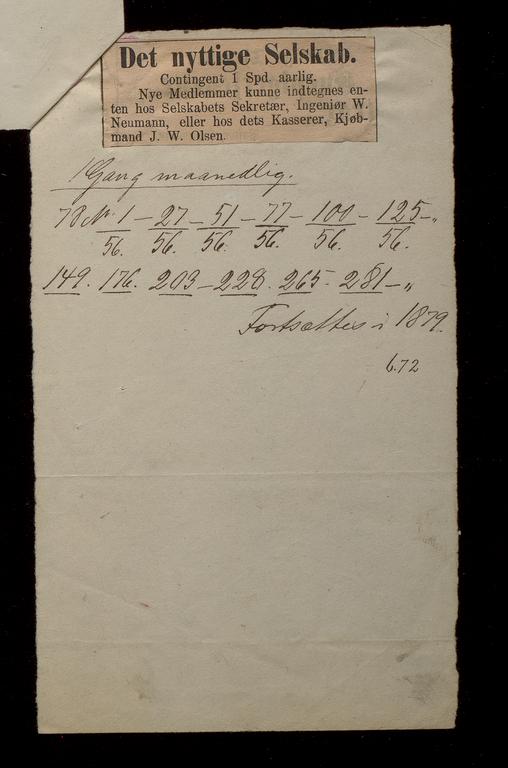 Det nyttige Selskab.
Contingent 1 Spd. aarlig.
Nye Medlemmer kunne indtegnes en-
ten hos Selskabets Sekretær, Ingeniør W.
Neumann, eller hos dets Kasserer, Kjøb-
mand J. W. Olsen.
1 Gang maanedlig.
78 No. 1 – 27 – 51 – 77 – 100 – 125 – „
56. 56. 56. 56. 56. 56.
149. 176. 203 – 228. 265 – 281 – „
Fortsættes i 1879.
6.72